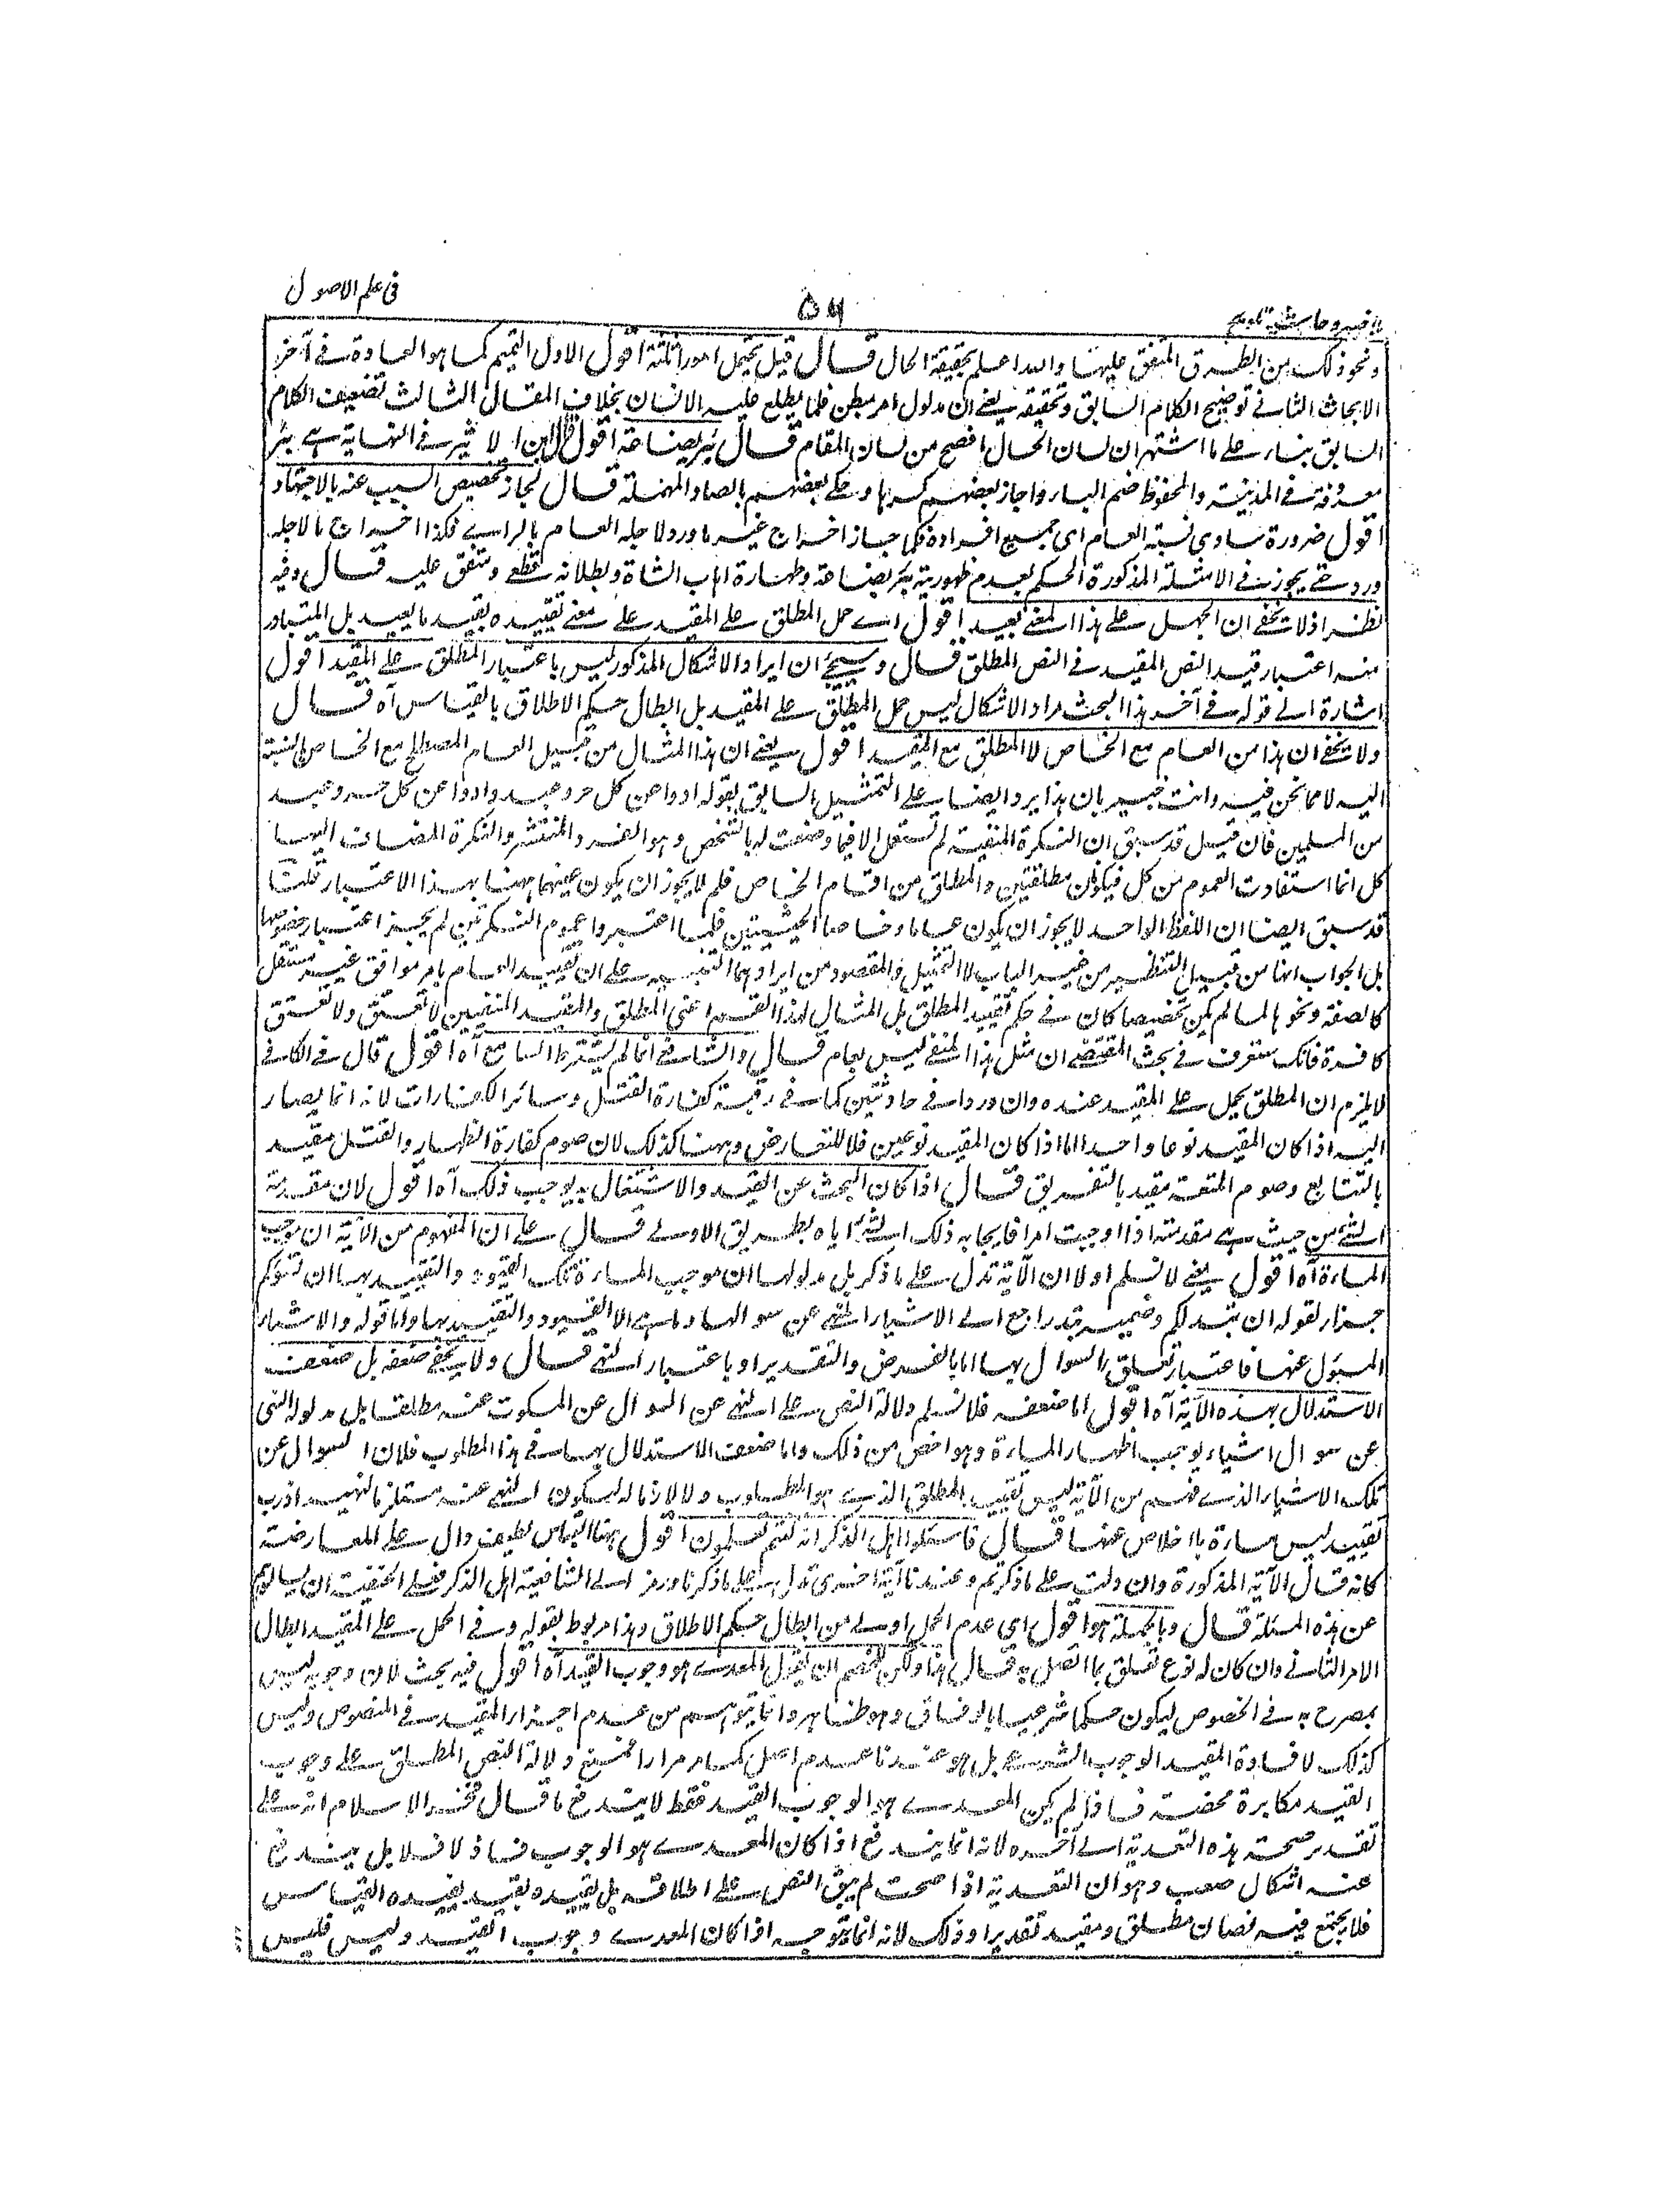 في علم الاصول
۵۶
ملا خسرو حاشية تلويح
ونحو ذلك من الطرق المتفق عليها والله اعلم بحقيقة الحال قال قيل يحتمل امورا ثلثة اقول الاول التتميم كما هو العادة في آخر
الابحاث الثاني توضيح الكلام السابق وتحقيقه يعني ان مدلول امر مبطن قلما يطلع عليه الانسان بخلاف المقال الثالث تضعيف الكلام
السابق بناء على ما اشتهر ان لسان الحال افصح من لسان المقام قال بئر بضاعة اقول قال ابن الاثير في النهاية هي بئر
معروفة في المدينة والمحفوظ ضم الباء واجاز بعضهم كسرها وحكى بعضهم بالصاد المهملة قال لجاز تخصيص السبب عنه بالاجتهاد
اقول ضرورة تساوي نسبة العام اى جميع افراده فكما جاز اخراج غير ما ورد لاجله العام بالراى فكذا اخراج ما لاجله
ورد حتى يجوز في الامثلة المذكورة الحكم بعدم طهورية بئر بضاعة وطهارة اهاب الشاة وبطلانه قطعي ومتفق عليه قال وفيه
نظر اذ لا يخفى ان الحمل على هذا المعنى بعيد اقول اى حمل المطلق على المقيد على معنى تقييده بقيد ما بعيد بل المتبادر
منه اعتبار قيد النص المقيد في النص المطلق قال وسيجئ ان ايراد الاشكال المذكور ليس باعتبار المطلق على المقيد اقول
اشارة الى قوله في آخر هذا البحث مراد الاشكال ليس حمل المطلق على المقيد بل ابطال حكم الاطلاق بالقياس آه قال
ولا يخفى ان هذا من العام مع الخاص لا المطلق مع المقيد اقول يعني ان هذا المثال من قبيل العام المصطلح مع الخاص بالنسبة
اليه لا مما نحن فيه وانت خبير بان هذا يرد ايضا على التمثيل السابق بقوله ادوا عن كل حر وعبد وادوا عن كل حر وعبد
من المسلمين فان قيل قد سبق ان النكرة المنفية لم تستعمل الا فيما وضعت له بالشخص وهو الفرد المنتشر والنكرة المضاف اليها
كل انما استفادت العموم من كل فيكونان مطلقتين والمطلق من اقسام الخاص فلم لا يجوز ان يكون عينهما ههنا بهذا الاعتبار قلت
قد سبق ايضا ان اللفظ الواحد لا يجوز ان يكون عاما وخاصا بالحيثيتين فلما اعتبروا عموم النكرتين لم يجز اعتبار خصوصها
بل الجواب انها من قبيل التنظير من غير الباب لا التمثيل والمقصود من ايرادهما التنبيه على ان تقييد العام بامر موافق غير مستقل
كالصفة ونحوها لما لم يكن تخصيصا كان في حكم تقييد المطلق بل المثال لهذا القسم اعني المطلق والمقيد المنفيين لا تعتق ولا تعتق
كافرة فانك ستعرف في بحث المقتضى ان مثل هذا المنفي ليس بعام قال والشافعي انما لم يشترط التتابع آه اقول قال في الكافي
لا يلزم ان المطلق يحمل على المقيد عنده وان وردا في حادثتين كما في رقبة كفارة القتل وسائر الكفارات لانه انما يصار
اليه اذا كان المقيد نوعا واحدا اما اذا كان المقيد نوعين فلا للتعارض وههنا كذلك لان صوم كفارة الظهار والقتل مقيد
بالتتابع وصوم المتعة مقيد بالتفريق قال اذا كان البحث عن القيد والاشتغال به يوجب ذلك آه اقول لان مقدمة
الشئ من حيث هي مقدمته اذا اوجبت امرا فايجابه ذلك الشئ اياه بطريق الاولى قال على ان المفهوم من الآية ان موجب
المساءة آه اقول يعني لا نسلم اولا ان الآية تدل على ما ذكر بل مدلولها ان موجب المساءة تلك القيود والتقييد بها ان تسؤكم
جزاء لقوله ان تبد لكم وضمير تبد راجع الى الاشياء المنهي عن سوالها وما هي الا القيود والتقييد بها واما قوله والاشياء
المسؤل عنها فاعتبار تعلق السوال بها اما بالفرض والتقدير او باعتبار النهي قال ولا يخفى ضعفه بل ضعف
الاستدلال بهذه الآية آه اقول اما ضعفه فلا نسلم دلالة النص على النهي عن السوال عن المسكوت عنه مطلقا بل مدلوله النهي
عن سوال اشياء يوجب اظهارها المساءة وهو اخص من ذلك واما ضعف الاستدلال بها في هذا المطلوب فلان السوال عن
تلك الاشياء الذي فهم من الآية ليس تقييد المطلق الذي هو المطلوب ولا لازما له ليكون النهي عنه مستلزما لنهيه اذ رب
تقييد ليس مساءة بل اخلاص عنها قال فاسئلوا اهل الذكر ان كنتم لا تعلمون اقول هذا اقتباس لطيف دال على المعارضة
كانه قال الآية المذكورة وان دلت على ما ذكرتم وعندنا آية اخرى تدل على ما ذكرنا ورمز الى الشافعية اهل الذكر فعلى الحنفية ان يسالوهم
عن هذه المسئلة قال وبالجملة هو اقول اى عدم الحمل اولى من ابطال حكم الاطلاق وهذا مربوط بقوله وفي الحمل على المقيد ابطال
الامر الثاني وان كان له نوع تعلق بما اتصل به قال هذا ولكن للخصم ان يقول المعدى هو وجوب القيد آه اقول فيه بحث لان وجوبه ليس
بمصرح به في الخصوص ليكون حكما شرعيا بالوفاق وهو ظاهر وانما يتوهم من عدم اجزاء المقيد في المنصوص وليس
كذلك لافادة المقيد الوجوب الشرعي بل هو عندنا عدم اصلي كما مر مرارا فمنع دلالة النص المطلق على وجوب
القيد مكابرة محضة فاذا لم يكن المعدى هو الوجوب القيد فقط لا يندفع ما قال فخر الاسلام انه على
تقدير صحة هذه التعدية الى آخره لانه انما يندفع اذا كان المعدى هو الوجوب فاذ لا فلا بل يندفع
عنه اشكال صعب وهو ان التعدية اذا صحت لم يبق النص على اطلاقه بل تقييده بقيد يفيده القياس
فلا يجتمع فيه نصان مطلق ومقيد تقديرا وذلك لانه انما يتوجه اذا كان المعدى وجوب القيد وليس فليس